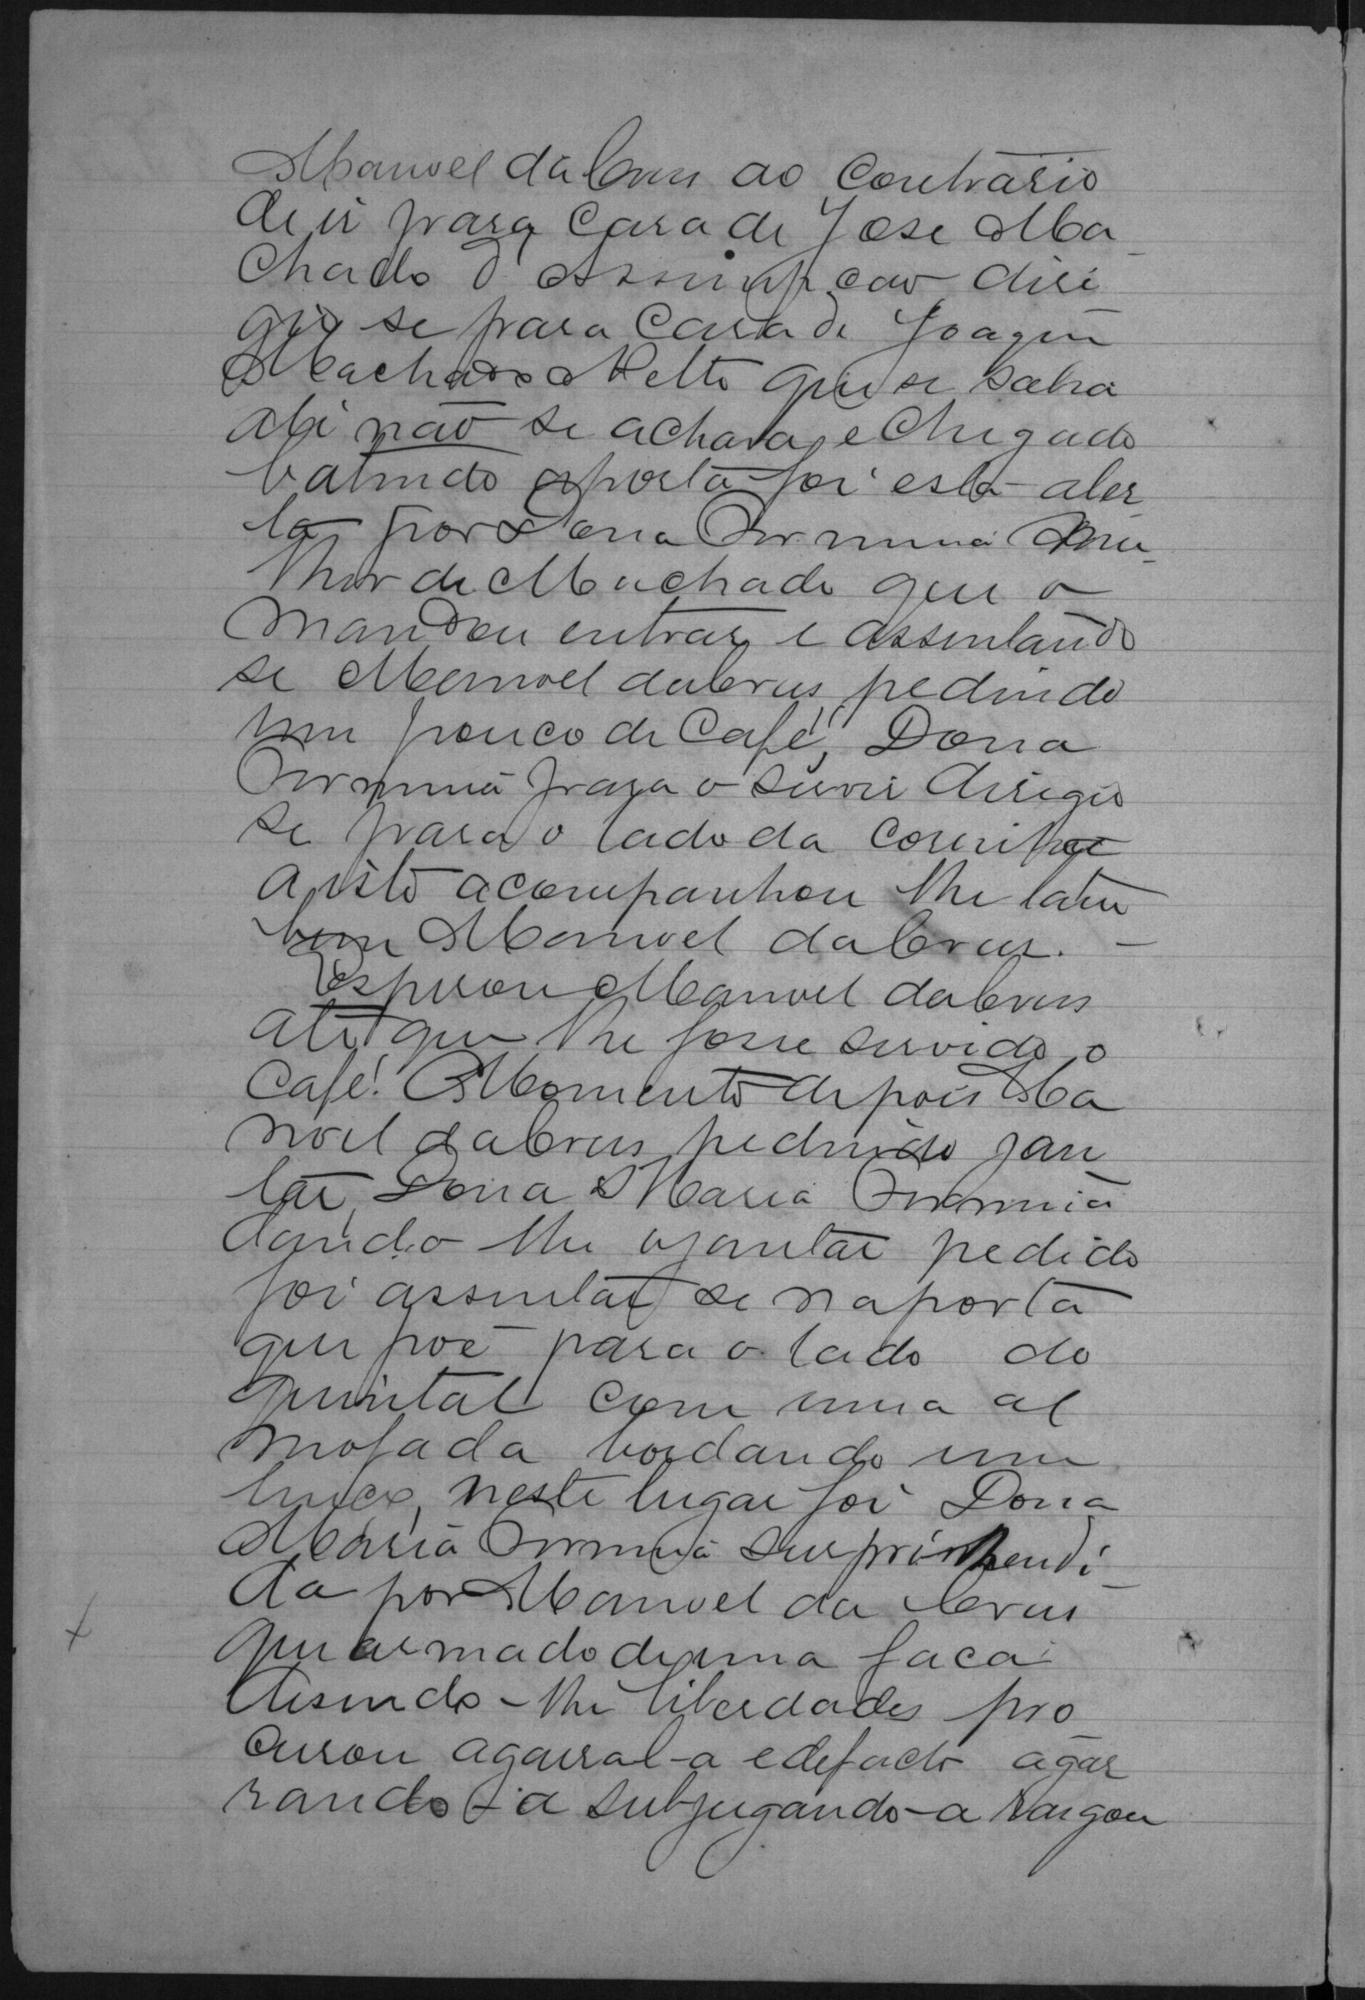 Manoel da Crus ao contrario
de ir para casa de Jose Ma
chado d'Assumpção diri
gio se para casa de Joaquim
Machado Netto que se sabia
ahi não se achava, e chegado
batendo aporta foi esta aber
ta por Dona Firmina mu
lher de Machado que o
mandou entrar e assentando
se Manoel da Crus, pedindo
um pouco de Café, Dona
Firmina para o servir dirigio
se para o lado da cosinha
a isto acompanhou lhe tam
bem Manoel da Crus. –
Esperou Manoel da Crus
até que lhe fosse servido o
Café! Momento depois Ma
noel da Crus pedindo jan
tar, Dona Maria Firmina
dando lhe ojantar pedido
foi assentar se naporta
que poe para o lado do
quintal com uma al
mofada bordando um
lenço, neste lugar foi Dona
Maria Firmina surprihendi
da por Manoel da Crus
que armado de uma faca
disendo-lhe liberdades pro
curou agarral-a e defacto agar
rando-a subjugando-a rasgou